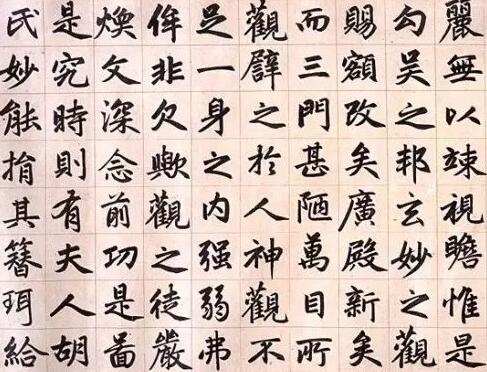 麗無以竦視瞻惟是
勾吳之邦玄妙之觀
賜額改矣廣殿新矣
而三門甚陋萬目所
觀譬之於人神觀不
足一身之內强弱弗
侔非欠歟觀之徒嚴
煥文深念前功是啚
是究時則有夫人胡
氏妙能捐其簪珥給